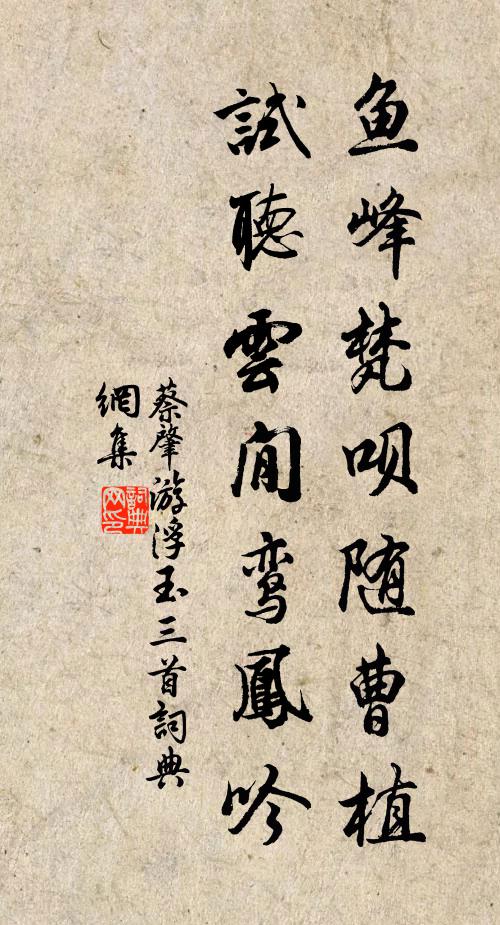 鱼峰梵呗随曹植
試聽雲間鸾鳳吟
蔡肇游浮玉三首詞典
網集
詞典
网印